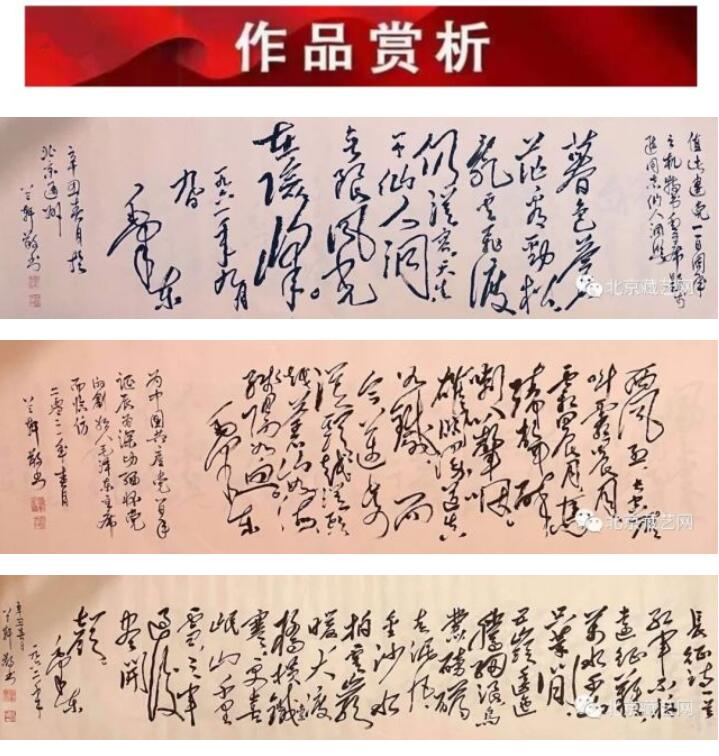 作品赏析
值此建党一百周年
之机特书毛主席题李
进同志仙人洞照
暮色苍
茫看劲松
乱云飞渡
仍从容天生
一个仙人洞
无限风光
在险峰。
一九六一年九月
九日
毛泽东
辛丑春月于
北京通州
兰轩敬书
北京藏艺网
西风烈,长空雁
叫霜晨月
霜晨月,马
蹄声碎
喇叭声咽。
雄关漫道真
如铁,而
今迈步
从头越从头
越苍山如海
残阳如血。
毛泽东
为中国共产党百年
诞辰为深切缅怀党
的创始人毛泽东主席
而临仿
二零二一年春月
兰轩敬书
北京藏艺网
长征诗一首
红军不怕
远征难
万水千山
只等闲
五岭逶迤
腾细浪乌
蒙磅礴
走泥丸
金沙水
拍云崖
暖大渡
桥横铁索
寒更喜
岷山千里
雪三军
过后
尽开
颜
毛泽东
一九六二年
辛丑春月
兰轩敬书
北京藏艺网